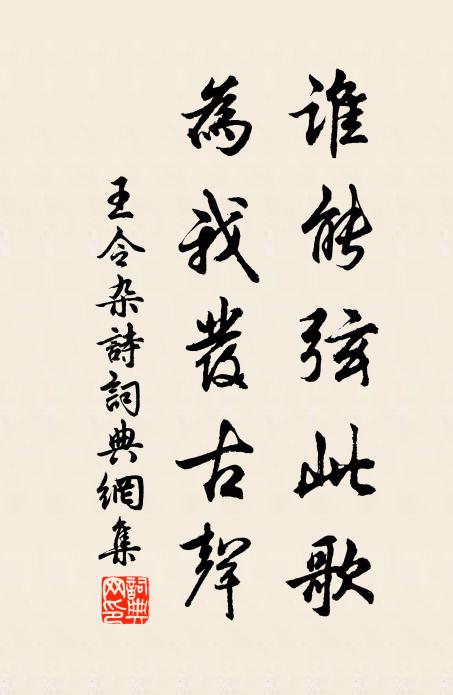 誰能弦此歌
為我發古聲
王令杂詩詞典網集
詞典网印